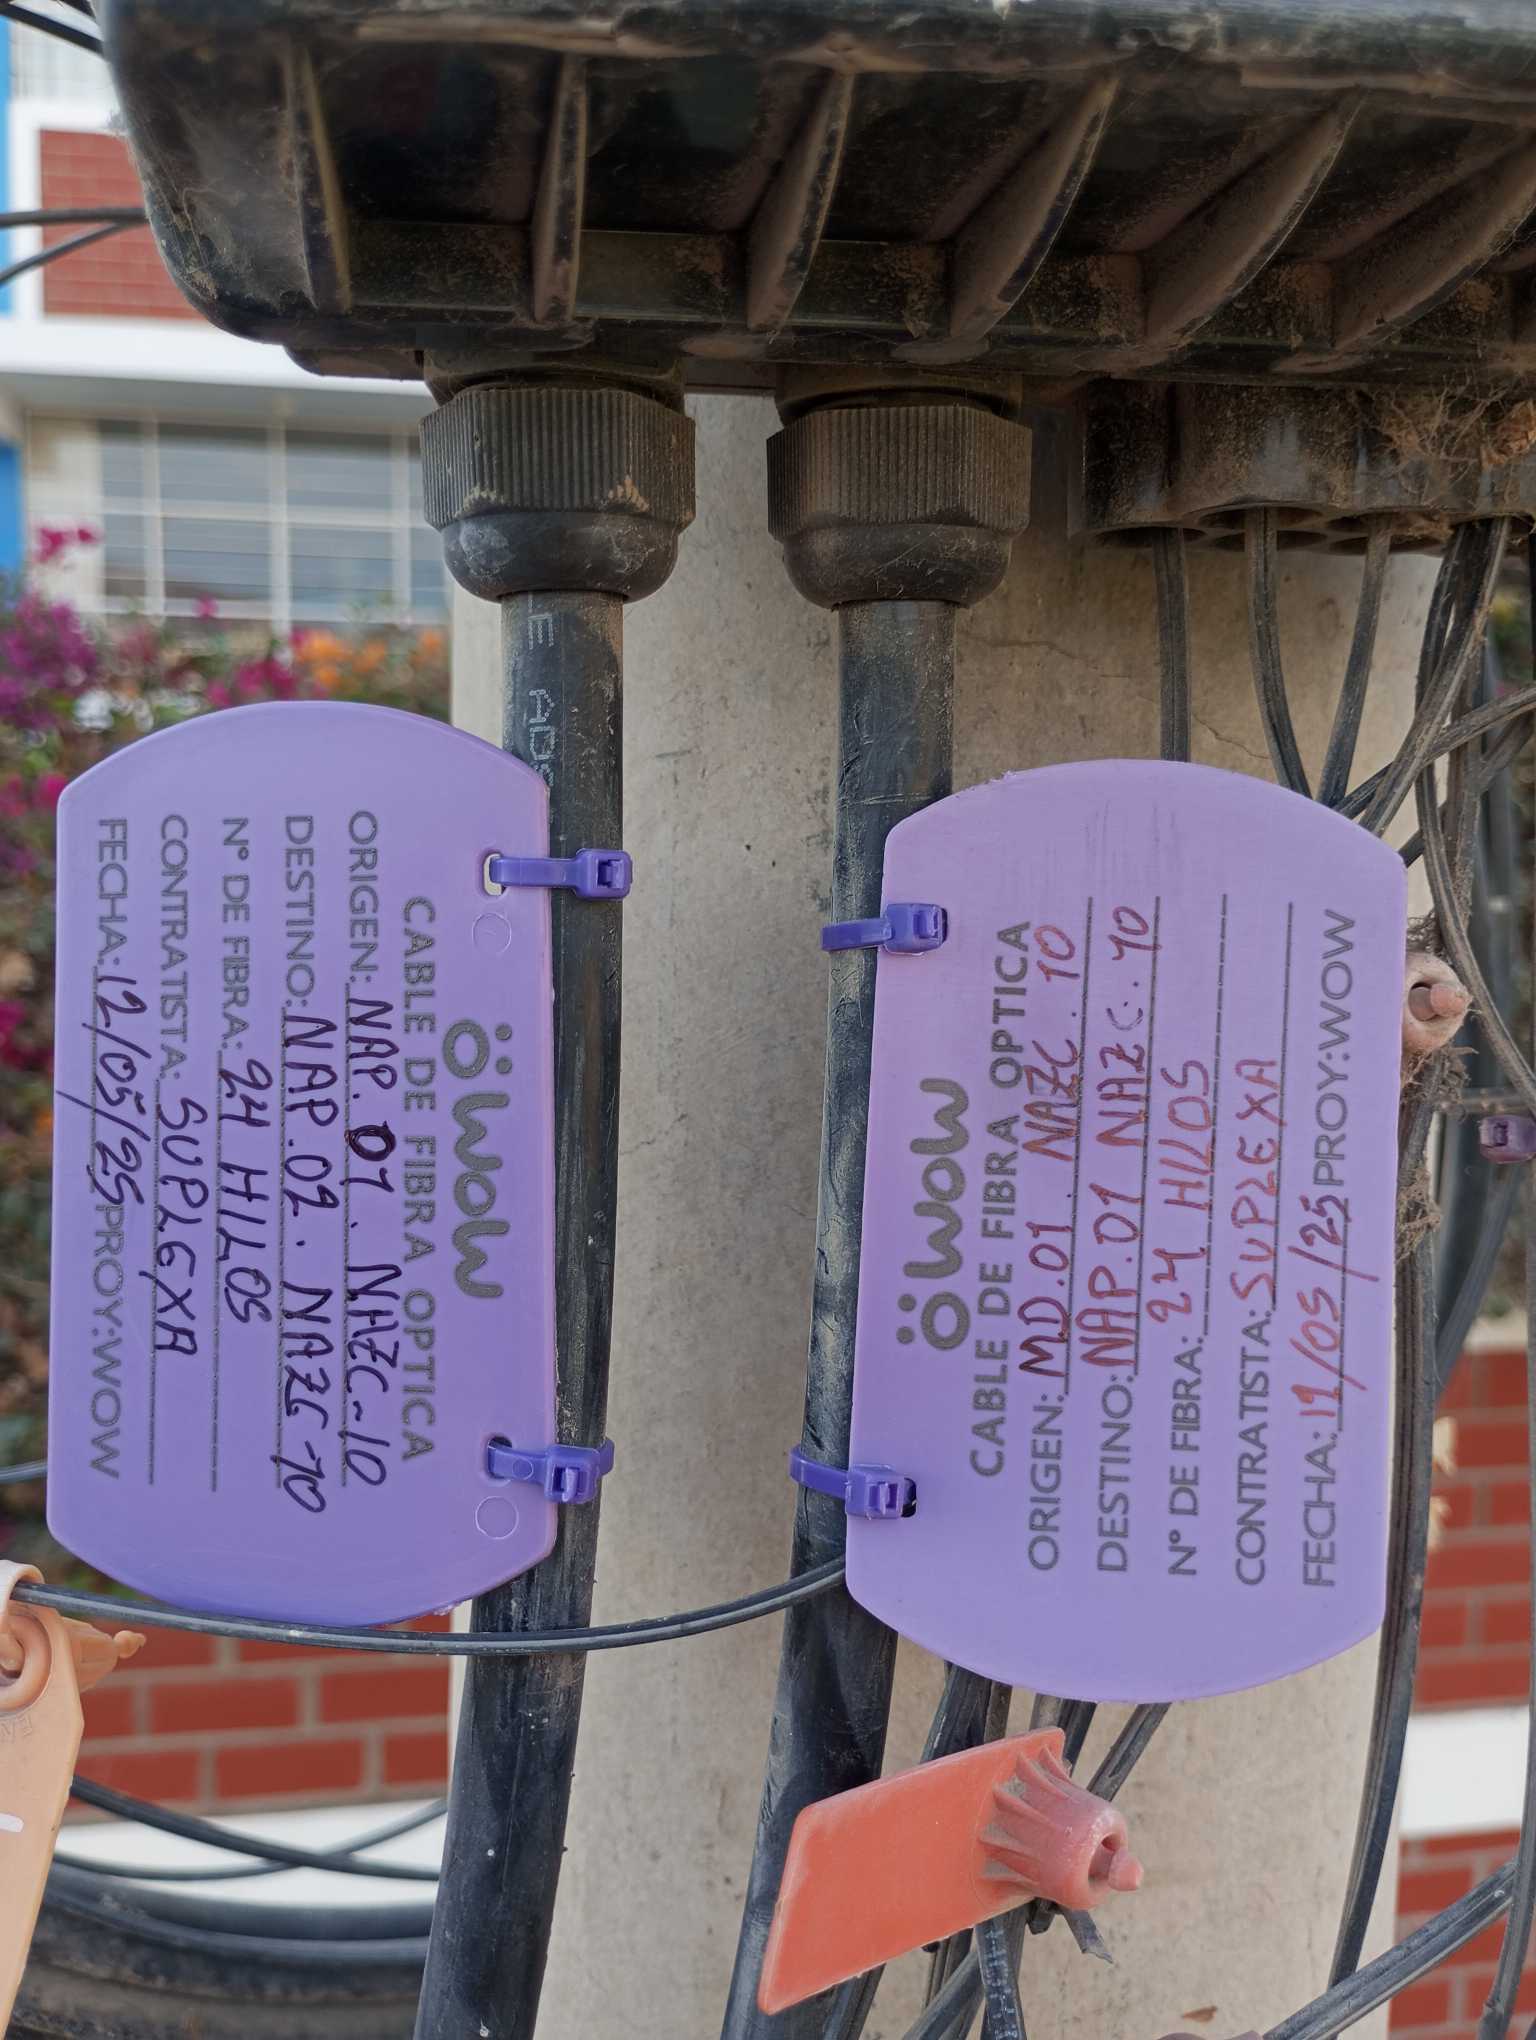 E ADS
wow
CABLE DE FIBRA OPTICA
ORIGEN: NAP.01.NAZC-10
DESTINO: NAP.02.NAZC-10
N° DE FIBRA: 24 HILOS
CONTRATISTA: SUPLEXA
FECHA: 12/05/25 PROY: WOW
wow
CABLE DE FIBRA OPTICA
ORIGEN: MD.01.NAZC.10
DESTINO: NAP.01 NAZC.10
N° DE FIBRA: 24 HILOS
CONTRATISTA: SUPLEXA
FECHA: 11/05/25 PROY: WOW